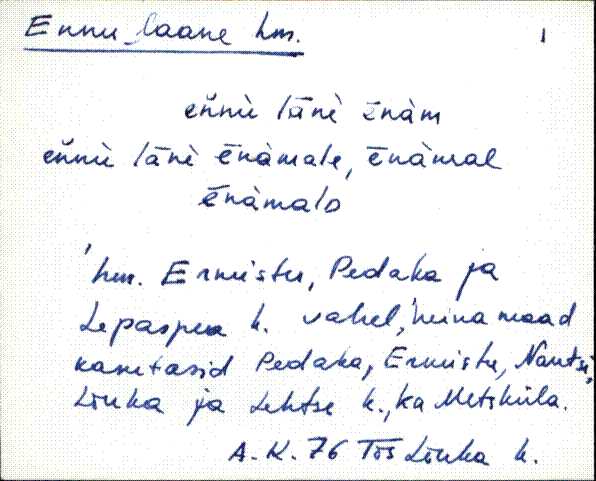 Ennu laane hm. 1
eňnù lānè ēnàm
eňnù lānè ēnàmale, ēnàmal
ēnàmalo
'hm. Ermistu, Pedaka ja
Lepaspea k. vahel,' heinamaad
kasutasid Pedaka, Ermistu, Nautsi,
Lõuka ja Lehtse k., ka Metsküla.
A.K. 76 Tõs Lõuka k.